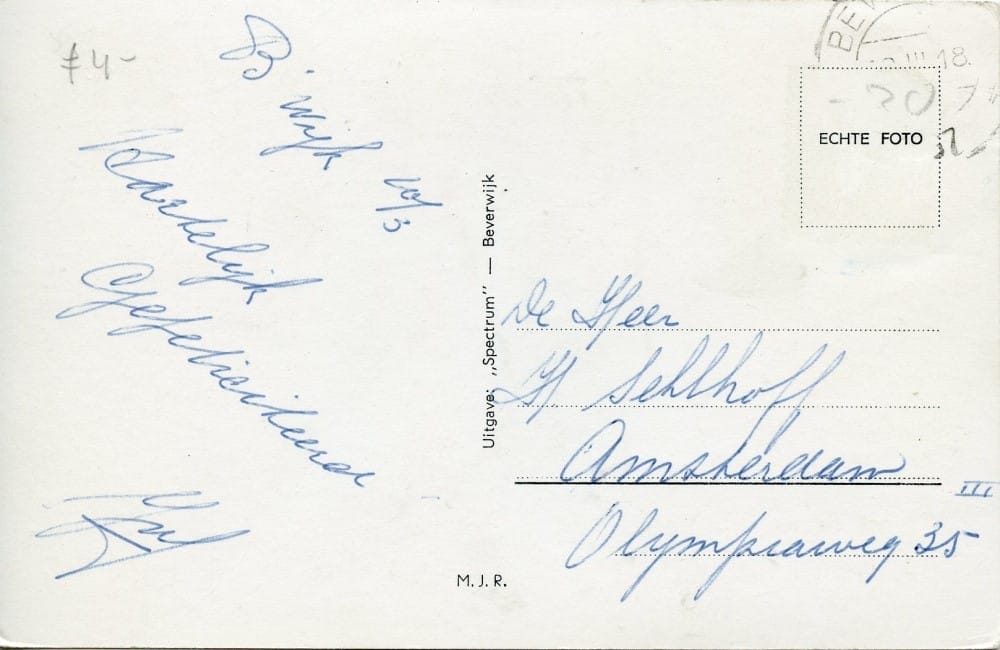 ƒ 4-
B. wijk 10/3
Hartelijk
Gefeliciteerd
BE
III 18.
- 20
ECHTE FOTO
Uitgave: „Spectrum” — Beverwijk
De Heer
H Sehlhoff
Amsterdam
III
Olympiaweg 35
M. J. R.